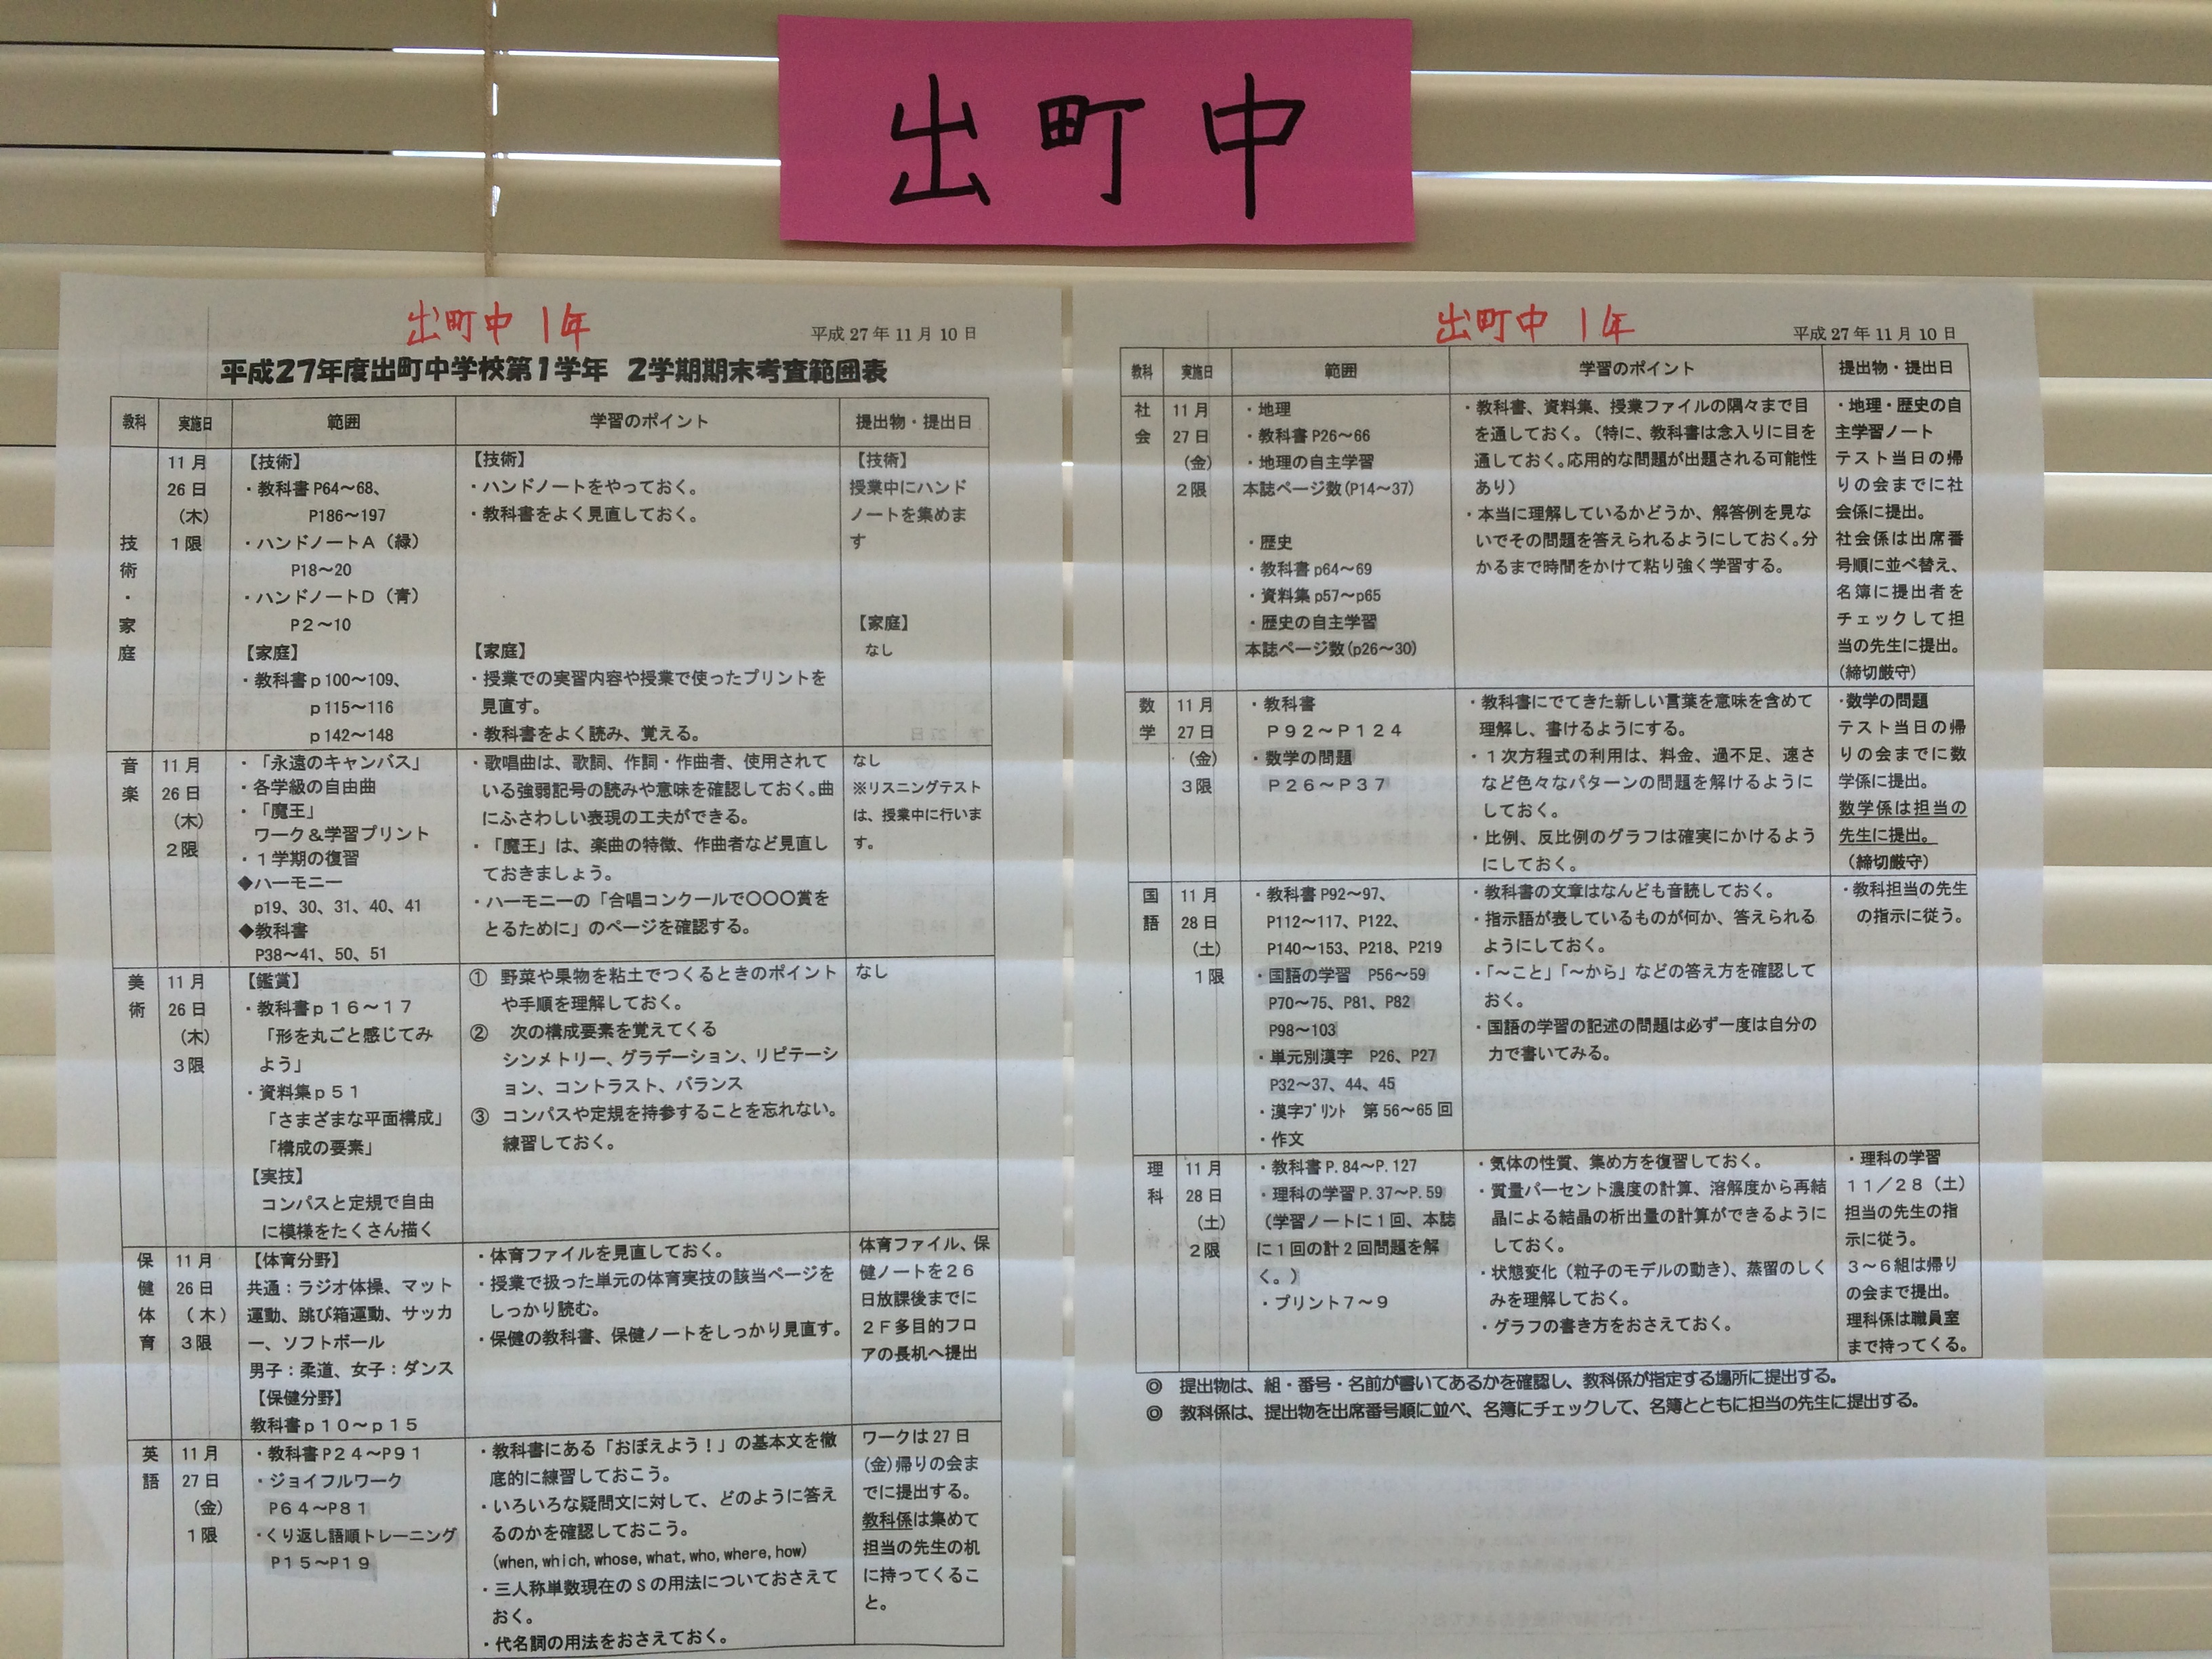 出町中
出町中 1年
平成27年11月10日
平成27年度出町中学校第1学年 2学期期末考査範囲表
教科 実施日 範囲 学習のポイント 提出物・提出日
技術・家庭
11月
26日
(木)
1限
【技術】
・教科書P64～68、
P186～197
・ハンドノートA(緑)
P18～20
・ハンドノートD(青)
P2～10
【家庭】
・教科書p100～109、
p115～116
p142～148
【技術】
・ハンドノートをやっておく。
・教科書をよく見直しておく。
【家庭】
・授業での実習内容や授業で使ったプリントを
見直す。
・教科書をよく読み、覚える。
【技術】
授業中にハンド
ノートを集めま
す
【家庭】
なし
音楽
11月
26日
(木)
2限
・「永遠のキャンバス」
・各学級の自由曲
・「魔王」
ワーク＆学習プリント
・1学期の復習
◆ハーモニー
p19、30、31、40、41
◆教科書
P38～41、50、51
・歌唱曲は、歌詞、作詞・作曲者、使用されて
いる強弱記号の読みや意味を確認しておく。曲
にふさわしい表現の工夫ができる。
・「魔王」は、楽曲の特徴、作曲者など見直し
ておきましょう。
・ハーモニーの「合唱コンクールで〇〇〇賞を
とるために」のページを確認する。
なし
※リスニングテスト
は、授業中に行いま
す。
美術
11月
26日
(木)
3限
【鑑賞】
・教科書p16～17
「形を丸ごと感じてみ
よう」
・資料集p51
「さまざまな平面構成」
「構成の要素」
【実技】
コンパスと定規で自由
に模様をたくさん描く
① 野菜や果物を粘土でつくるときのポイント
や手順を理解しておく。
② 次の構成要素を覚えてくる
シンメトリー、グラデーション、リピテーシ
ョン、コントラスト、バランス
③ コンパスや定規を持参することを忘れない。
練習しておく。
なし
保健体育
11月
26日
(木)
3限
【体育分野】
共通：ラジオ体操、マット
運動、跳び箱運動、サッカ
ー、ソフトボール
男子：柔道、女子：ダンス
【保健分野】
教科書p10～p15
・体育ファイルを見直しておく。
・授業で扱った単元の体育実技の該当ページを
しっかり読む。
・保健の教科書、保健ノートをしっかり見直す。
体育ファイル、保
健ノートを26
日放課後までに
2F多目的フロ
アの長机へ提出
英語
11月
27日
(金)
1限
・教科書P24～P91
・ジョイフルワーク
P64～P81
・くり返し語順トレーニング
P15～P19
・教科書にある「おぼえよう！」の基本文を徹
底的に練習しておこう。
・いろいろな疑問文に対して、どのように答え
るのかを確認しておこう。
(when, which, whose, what, who, where, how)
・三人称単数現在のSの用法についておさえて
おく。
・代名詞の用法をおさえておく。
ワークは27日
(金)帰りの会ま
でに提出する。
教科係は集めて
担当の先生の机
に持ってくるこ
と。
出町中 1年
平成27年11月10日
教科 実施日 範囲 学習のポイント 提出物・提出日
社会
11月
27日
(金)
2限
・地理
・教科書P26～66
・地理の自主学習
本誌ページ数(P14～37)
・歴史
・教科書p64～69
・資料集p57～p65
・歴史の自主学習
本誌ページ数(p26～30)
・教科書、資料集、授業ファイルの隅々まで目
を通しておく。(特に、教科書は念入りに目を
通しておく。応用的な問題が出題される可能性
あり)
・本当に理解しているかどうか、解答例を見な
いでその問題を答えられるようにしておく。分
かるまで時間をかけて粘り強く学習する。
・地理・歴史の自
主学習ノート
テスト当日の帰
りの会までに社
会係に提出。
社会係は出席番
号順に並べ替え、
名簿に提出者を
チェックして担
当の先生に提出。
(締切厳守)
数学
11月
27日
(金)
3限
・教科書
P92～P124
・数学の問題
P26～P37
・教科書にでてきた新しい言葉を意味を含めて
理解し、書けるようにする。
・1次方程式の利用は、料金、過不足、速さ
など色々なパターンの問題を解けるように
しておく。
・比例、反比例のグラフは確実にかけるよう
にしておく。
・数学の問題
テスト当日の帰
りの会までに数
学係に提出。
数学係は担当の
先生に提出。
(締切厳守)
国語
11月
28日
(土)
1限
・教科書P92～97、
P112～117、P122、
P140～153、P218、P219
・国語の学習 P56～59
P70～75、P81、P82
P98～103
・単元別漢字 P26、P27
P32～37、44、45
・漢字プリント 第56～65回
・作文
・教科書の文章はなんども音読しておく。
・指示語が表しているものが何か、答えられる
ようにしておく。
・「～こと」「～から」などの答え方を確認して
おく。
・国語の学習の記述の問題は必ず一度は自分の
力で書いてみる。
・教科担当の先生
の指示に従う。
理科
11月
28日
(土)
2限
・教科書P.84～P.127
・理科の学習P.37～P.59
(学習ノートに1回、本誌
に1回の計2回問題を解
く。)
・プリント7～9
・気体の性質、集め方を復習しておく。
・質量パーセント濃度の計算、溶解度から再結
晶による結晶の析出量の計算ができるように
しておく。
・状態変化(粒子のモデルの動き)、蒸留のしく
みを理解しておく。
・グラフの書き方をおさえておく。
・理科の学習
11／28(土)
担当の先生の指
示に従う。
3～6組は帰り
の会まで提出。
理科係は職員室
まで持ってくる。
◎ 提出物は、組・番号・名前が書いてあるかを確認し、教科係が指定する場所に提出する。
◎ 教科係は、提出物を出席番号順に並べ、名簿にチェックして、名簿とともに担当の先生に提出する。